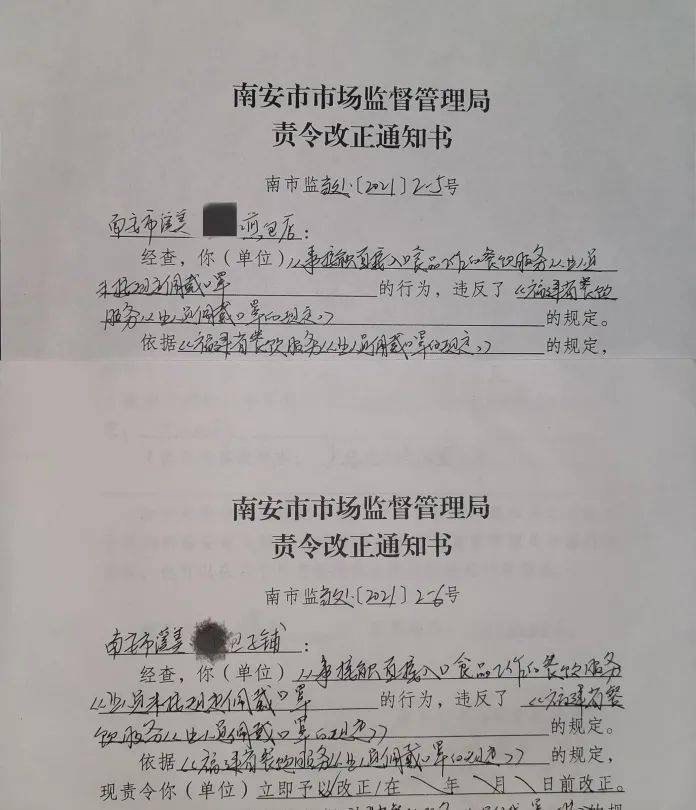 南安市市场监督管理局
责令改正通知书
南市监责处〔2021〕2-5号
南安市溪美 煎包店：
经查，你（单位）从事接触直接入口食品工作的餐饮服务从业人员
未按规定佩戴口罩的行为，违反了《福建省餐饮
服务从业人员佩戴口罩的规定》的规定。
依据《福建省餐饮服务从业人员佩戴口罩的规定》的规定，
南安市市场监督管理局
责令改正通知书
南市监责处〔2021〕2-6号
南安市溪美 包子铺：
经查，你（单位）从事接触直接入口食品工作的餐饮服务
从业人员未按规定佩戴口罩的行为，违反了《福建省餐
饮服务从业人员佩戴口罩的规定》的规定。
依据《福建省餐饮服务从业人员佩戴口罩的规定》的规定，
现责令你（单位）立即予以改正/在 年 月 日前改正。